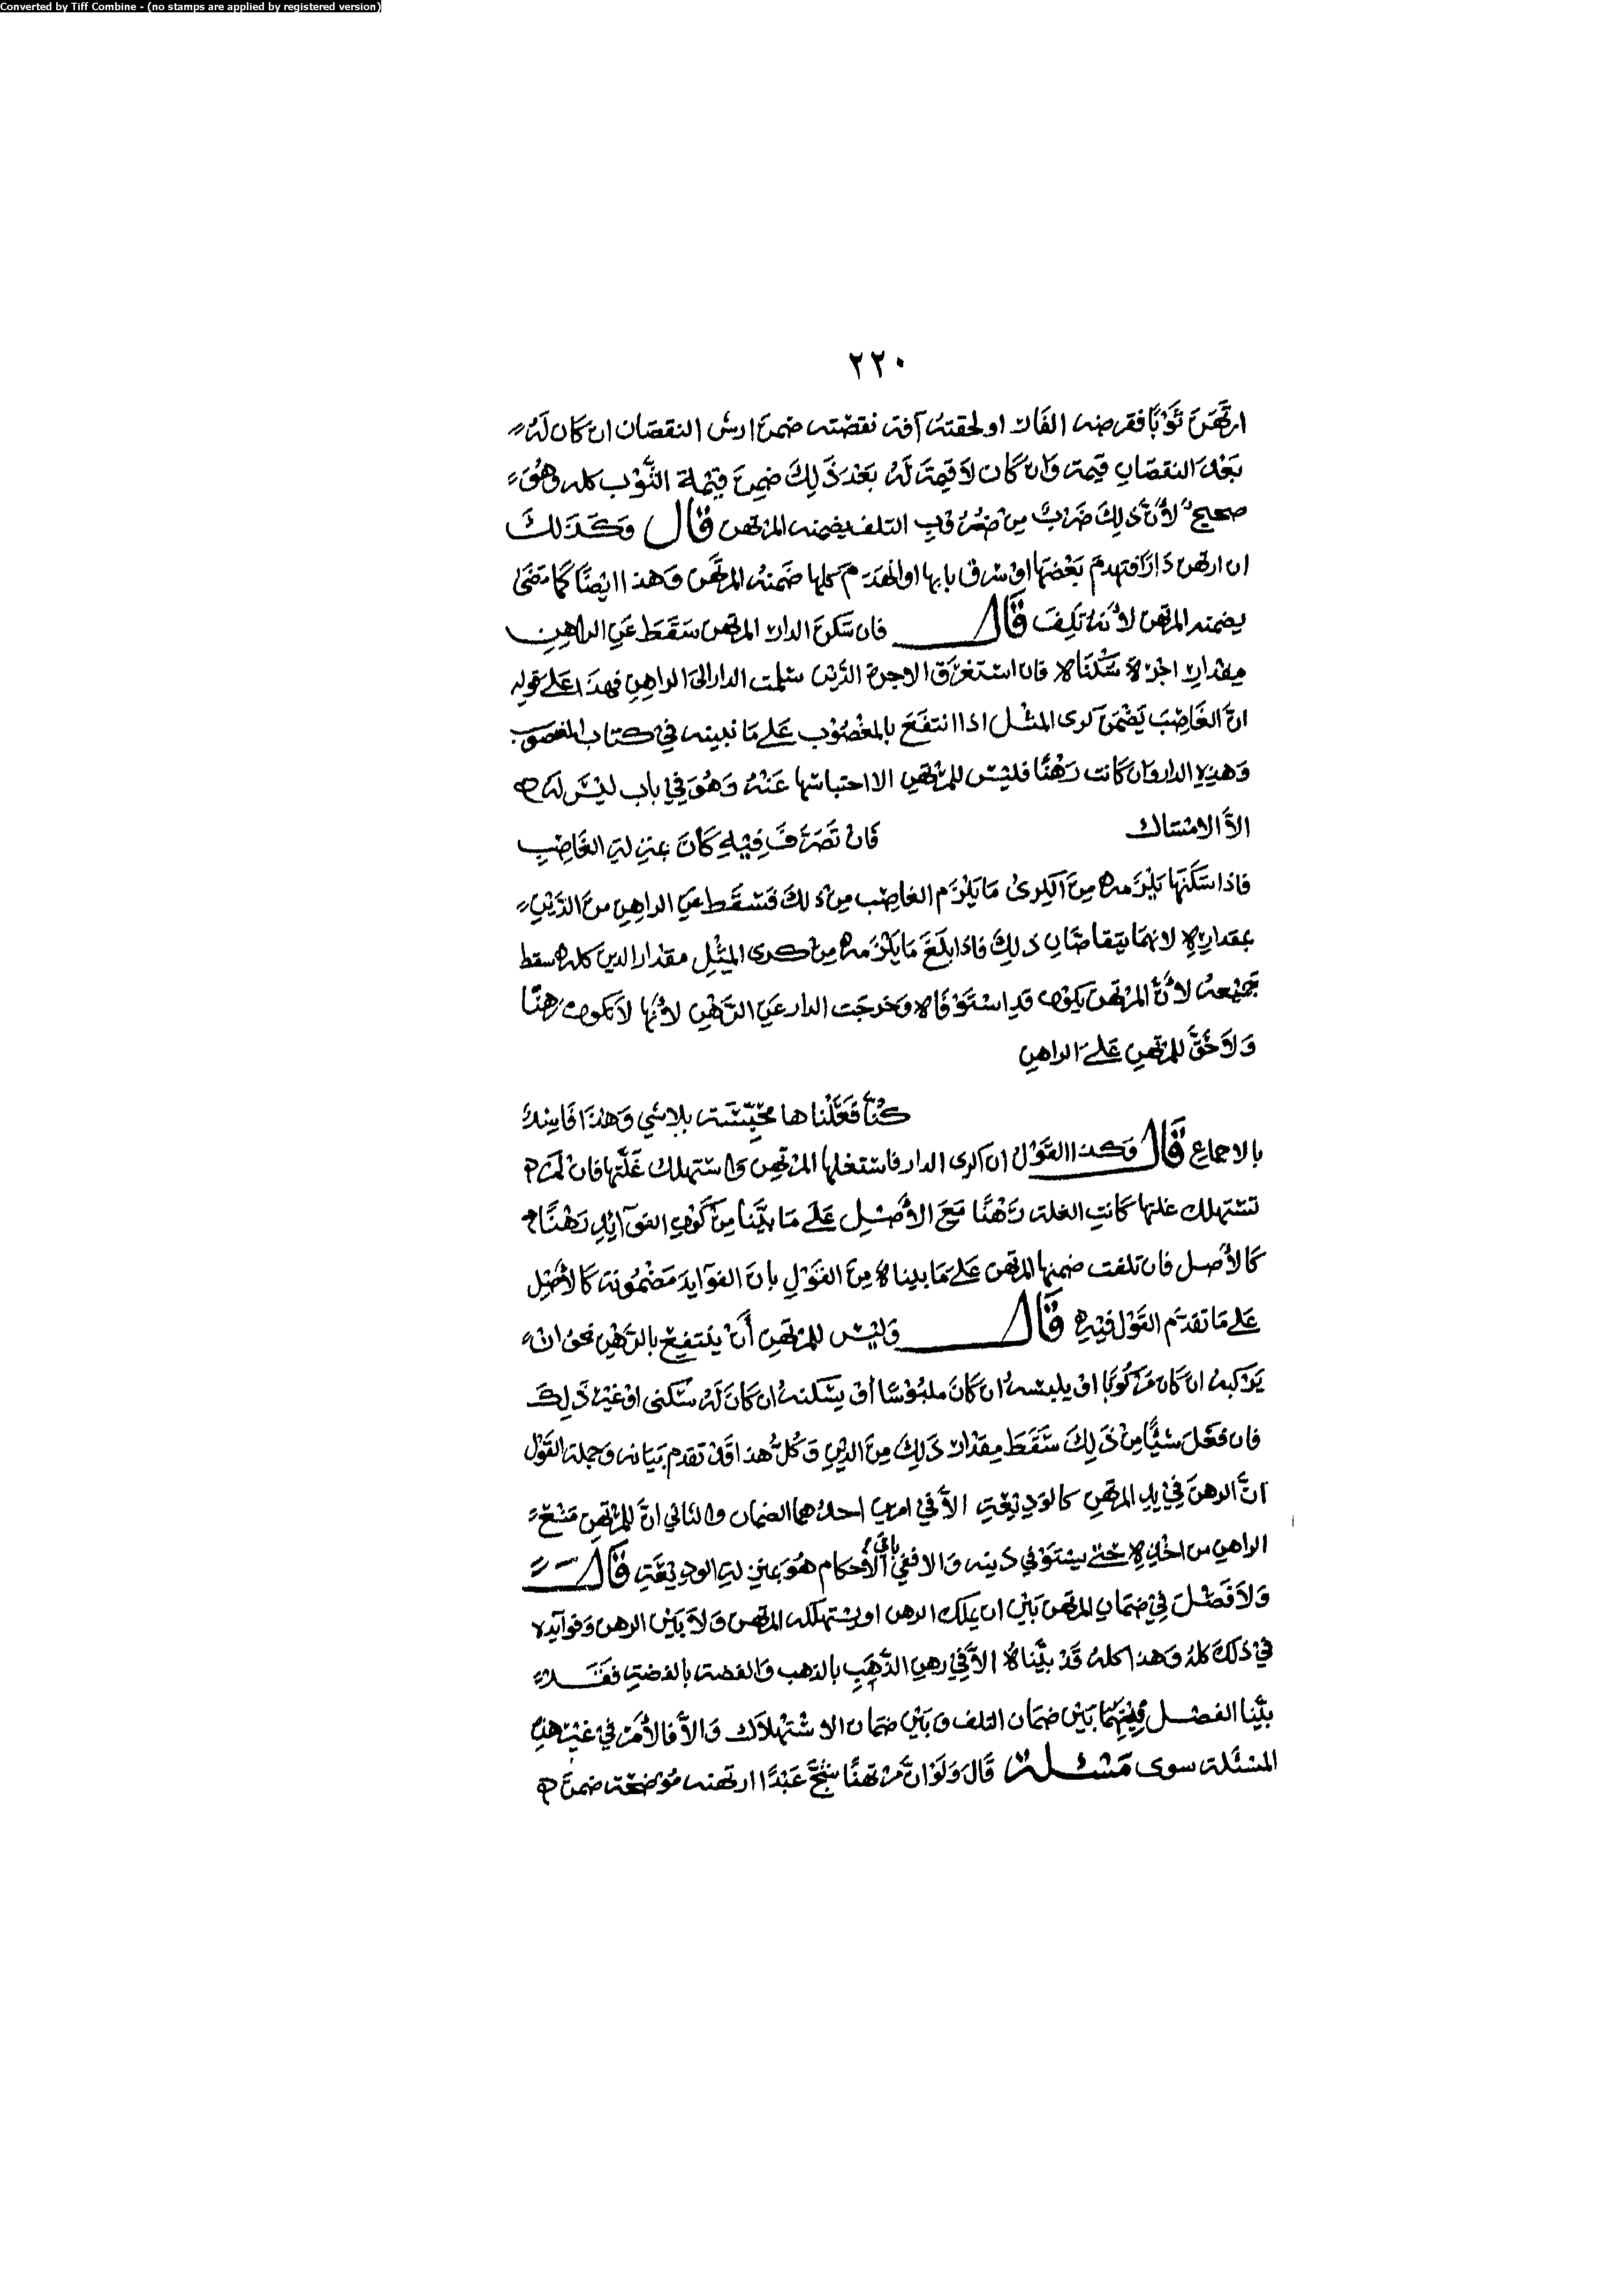 Converted by Tiff Combine - (no stamps are applied by registered version)
٢٢٠
ارتَهَنَ ثَوْبًا فقرضه الفَار او لحقته آفة نقصته ضمن ارش النقصان ان كان لَهُ
بَعْدَ النقصَانِ قيمة وَان كان لاَ قيمَة لَهُ بَعْدَ ذَلِكَ ضَمِنَ قِيْمة الثَّوْبِ كله وَهُوَ
صحيحٌ لأنّ ذلِكَ ضَرْبٌ مِن ضُرُوبِ التلف يضمنه المرتهن قال وَكَذَلكَ
ان ارتهن دَارًا فتهدمَ بَعْضهَا اوْ سُرق بابها او انهَدَم كلها ضَمنهُ المرتَهن وَهذا ايْضًا كما مَضَى
يضمنه المرتهن لأَنهُ تَلِفَ قَالَ فان سَكنَ الدار المرتهن سَقَطَ عَنِ الراهِنِ
مِقْدار اجْرَة سُكْنَاه فان استغرَق الاجرة الدَّين سُلمت الدار الى الراهِن فهذَا عَلَى قوله
انَّ الغَاصِبَ يَضْمَن كرى المثْل اذا انتفَعَ بالمغصُوْبِ عَلَى مَا نبينه فِي كتاب الغصوب
وَهذِهِ الدار وان كانت رَهْنًا فليْسَ للمرْتهِنِ الا احتباسُها عَنْهُ وَهُوَ فِي باب ليْسَ لَه
الاَّ الامْسَاك فَانْ تَصَرَّفَ فِيْهِ كَانَ بمنزلةِ الغَاصِبِ
فاذا سَكَنَهَا يَلْزَمه مِنَ الكِرىٰ مَا يَلْزَم الغاصِب مِنْ ذلكَ فَسَقَطَ عَنِ الراهِنِ منَ الدَّيْنِ
بمقدارِهِ لانهمَا يتقاصَّانِ ذلِكَ فاذا بَلَغَ مَا يَلْزَمه مِنْ كرى المِثْلِ مقدار الدين كله سقط
جَمِيْعهُ لأنَّ المرْتهن يكون قدِ اسْتَوْفَاه وَخرجَت الدار عَنِ الرَّهْنِ لأنّها لاَ تكون رَهنًا
وَلاَ حَقَّ للمرتهنِ عَلَى الراهنِ
كُنّا جَعَلْناها محبَّسَة بلا شَيْ وَهذَا فَاسِدٌ
بالاجماع قَالَ وَكذا القَوْل ان اكرى الدار فاستغلها المرْتهن وَاسْتهلك غَلَّتها فان لمْ
تستهلك غلتها كانتِ الغلة رَهْنًا مَعَ الأَصْلِ عَلَى مَا بيَّنا مِنْ كَوْنِ الفوَآئِدِ رَهْنًا
كالأَصل فان تلفت ضمنها المرتهن عَلَى مَا بيناه مِنَ القَوْلِ بانَ الفوَآئدَ مَضْمُونة كالأَصْلِ
عَلَى مَا تقدَّم القَوْل فيه قَالَ وَليْسَ للمرْتهِنِ أنْ يَنتفِعَ بالرَّهْنِ نحو انْ
يَرْكبهُ ان كان مَرْكُوبًا اوْ يلبسَهُ ان كانَ ملبُوْسًا اوْ يَسْكنهُ ان كَانَ لَهُ سُكنى اوْ غيْر ذَلِكَ
فان فَعَلَ شَيْئًا مِنْ ذَلِكَ سَقَطَ مِقدَار ذَلِكَ مِنَ الدَّينِ وَكُلُّ هذا قَدْ تقدم بَيَانه وَجملة القَوْل
انَّ الرهن فِي يدِ المرتهن كالوَدِيْعَةِ الاَّ في امرين احدُهما الضمان وَالثاني انَّ للمرْتهنِ مَنْعَ
الراهِن من اخْذِهِ حَتى يسْتَوْفي دَينه وَالا ففي باقي الأحكام هُوَ بمنزلةِ الودِيْعَةِ قَالَ
وَلاَ فَصْلَ فِي ضمَان المرتهن بَيْن ان يملك الرهن او يَسْتهلكه المرتهن وَلاَ بَيْن الرهن وَفوآئده
فِي ذلكَ كلهُ وَهذا كلهُ قَدْ بيَّناهُ الاَّ فِي رهن الذَّهَبِ بالذهب وَالفضة بالفضة فقَد
بيَّنا الفصْل فِيْهِمَا بَيْن ضمَان التلف وَبَيْن ضمَان الاسْتهْلاَك وَالاَّ فالأَمْر فِي غَيْر هَذِهِ
المسْئَلة سوى مَسْئلة قَالَ وَلَوْ انَّ مُرْتهنًا شَجَّ عَبْدًا ارتهنه مُوْضحَة ضمنَ